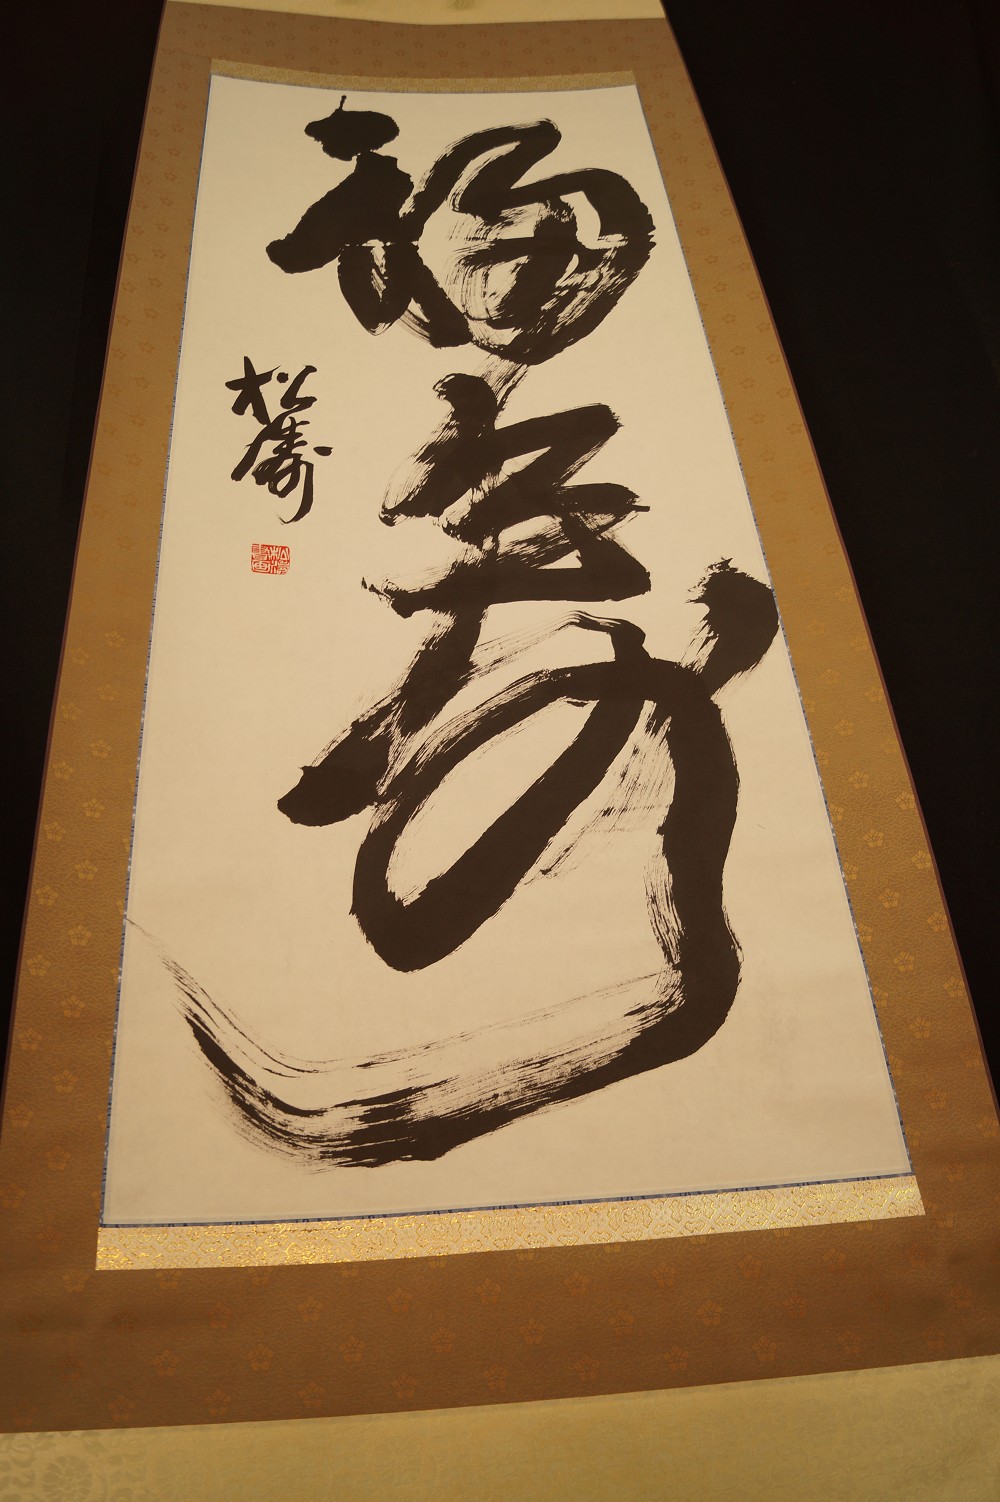 福寿
松濤